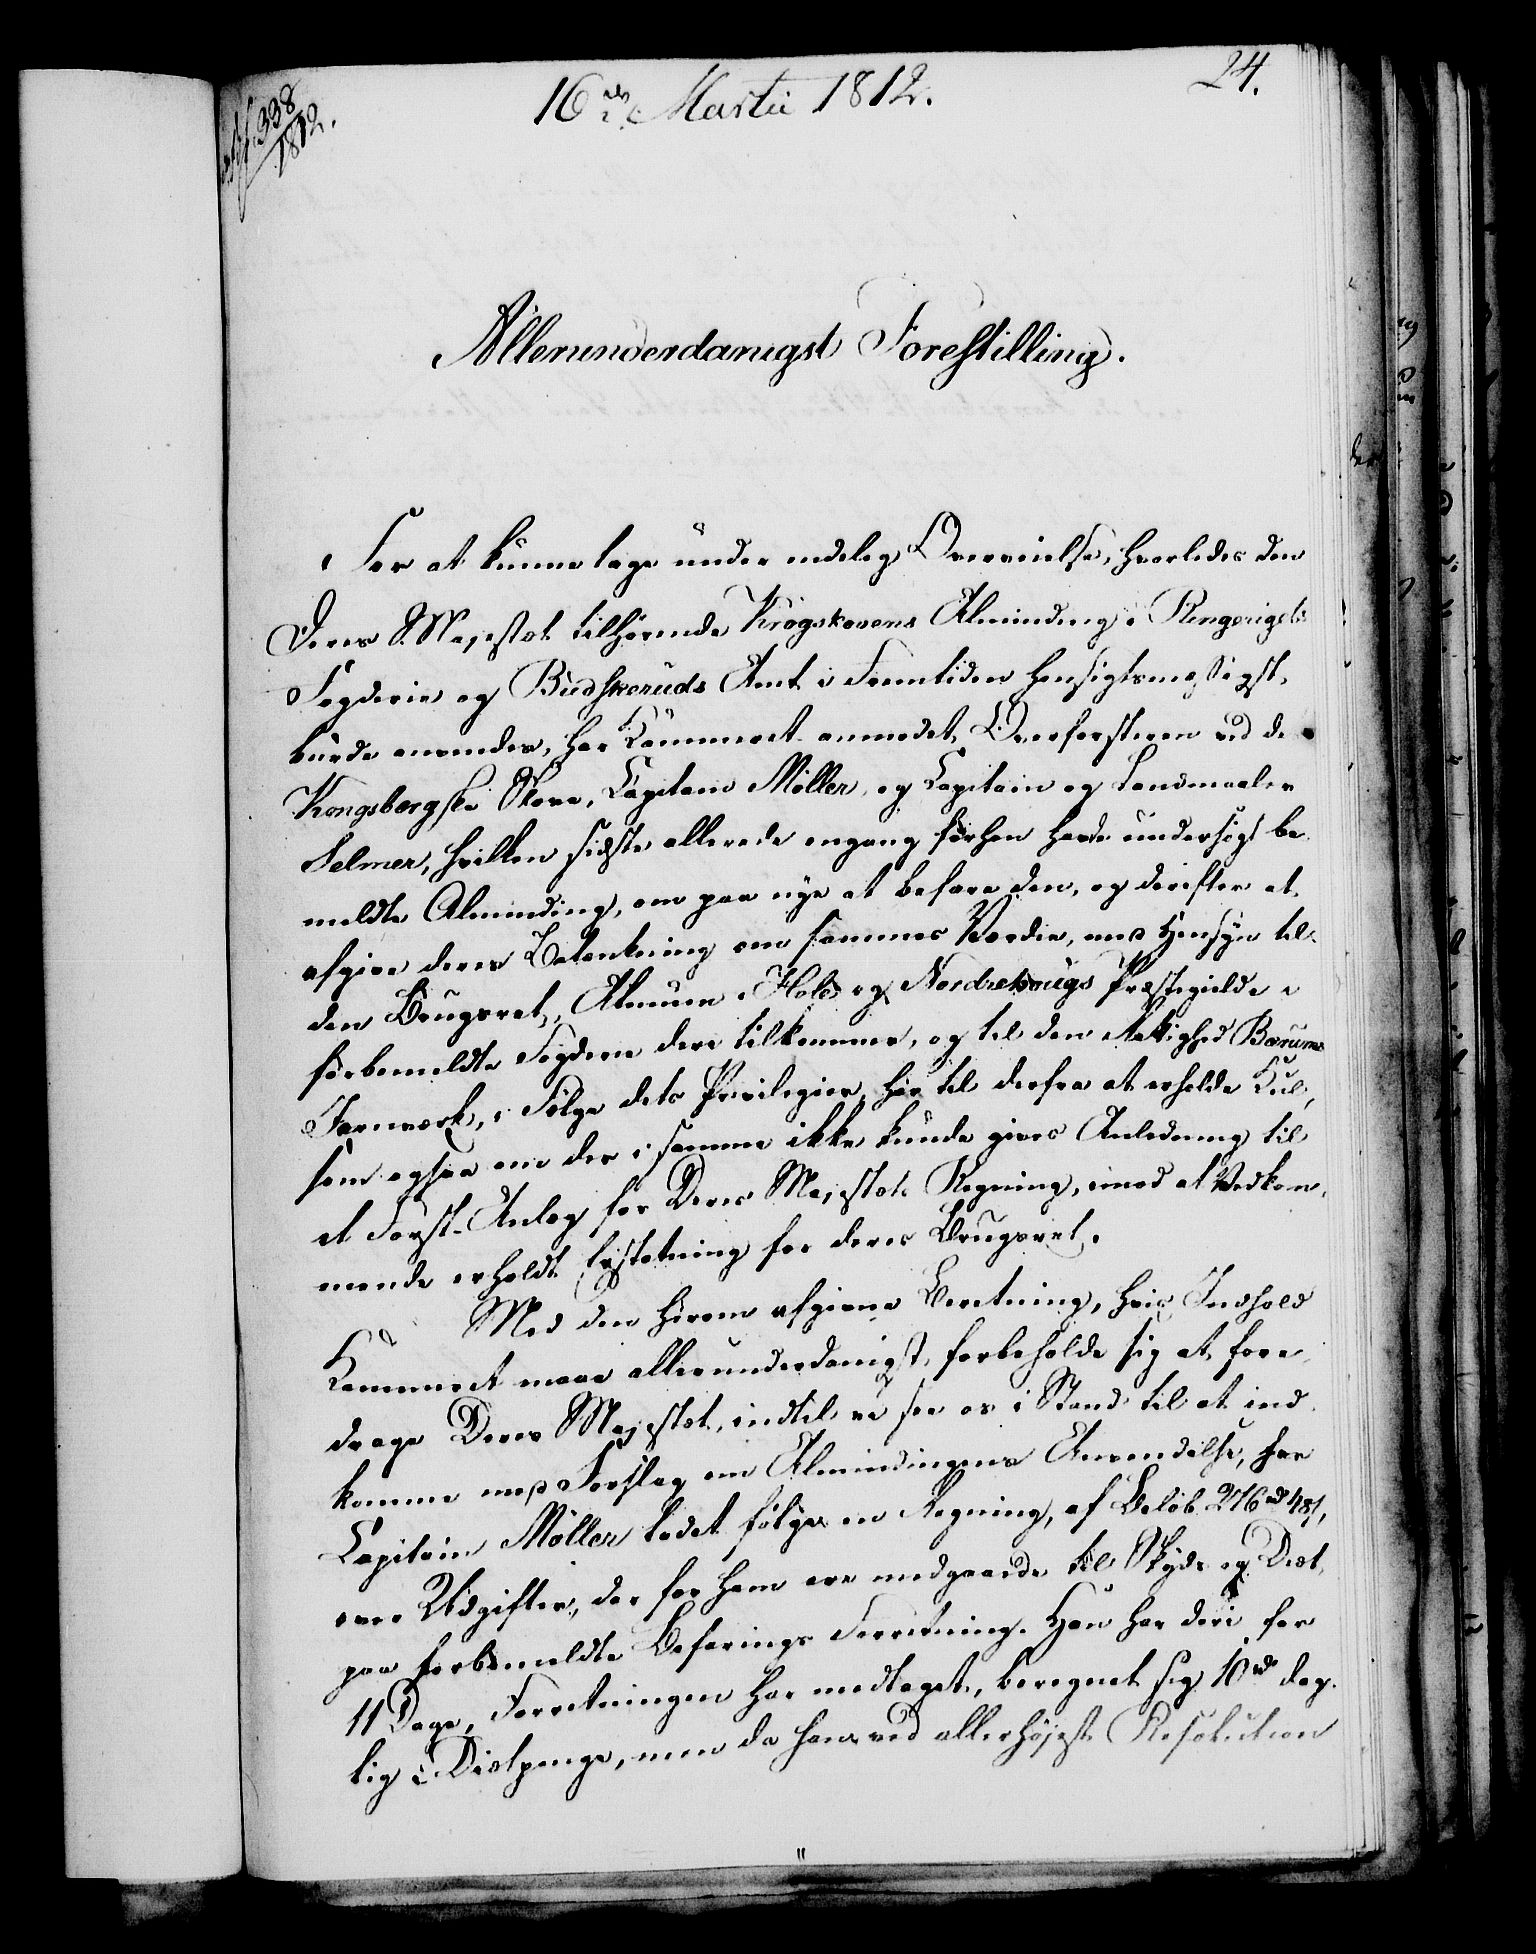 338/1812.
16de Martii 1812.
24.
Allerunderdanigst Forestilling.
For at kunne tage under endelig Overveielse, hvorledes den
Deres Majestæt tilhørende Krogskovens Alminding i Ringerigets
Fogderie og Budskeruds Amt i Fremtiden hensigtsmæssigst
burde anvendes, har Kammeret anmodet Overførsteren ved de
Kongsbergske Skove, Capitain Møller, og Capitain og Landmaaler
Selmer, hvilken sidste allerede engang forhen havde undersøgt be-
meldte Alminding, om paa nye at befare den, og derefter at
afgive deres Betænkning om sammes Værdie, med Hensyn til
den Brugsret, Almuen i Hole og Nordrehougs Præstegield i
forbemeldte Fogderie deri tilkommer, og til den Rettighed Bærums
Jernværk, i Følge dets Privilegier, har til derfra at erholde Kul,
som ogsaa om der i samme ikke kunde gives Anledning til
et Forst-Anlæg for Deres Majestæts Regning, imod at Vedkom-
mende erholdt Erstatning for deres Brugsret.
Med den herom afgivne Beretning, hvis Indhold
Kammeret maae allerunderdanigst forbeholde sig at fore-
drage Deres Majestæt, indtil vi see os i Stand til at ind-
komme med Forslag om Almindingens Anvendelse, har
Capitain Møller ladet følge en Regning, af Beløb 276 rd 48 s,
over Udgifter, der for ham ere medgaaede til Skyds og Diæt,
paa forbemeldte Befarings Forretning. Han har deri for
11 Dage, Forretningen har medtaget, beregnet sig 10 rd dag-
lig i Diætpenge, men da han ved allerhøjeste Resolution